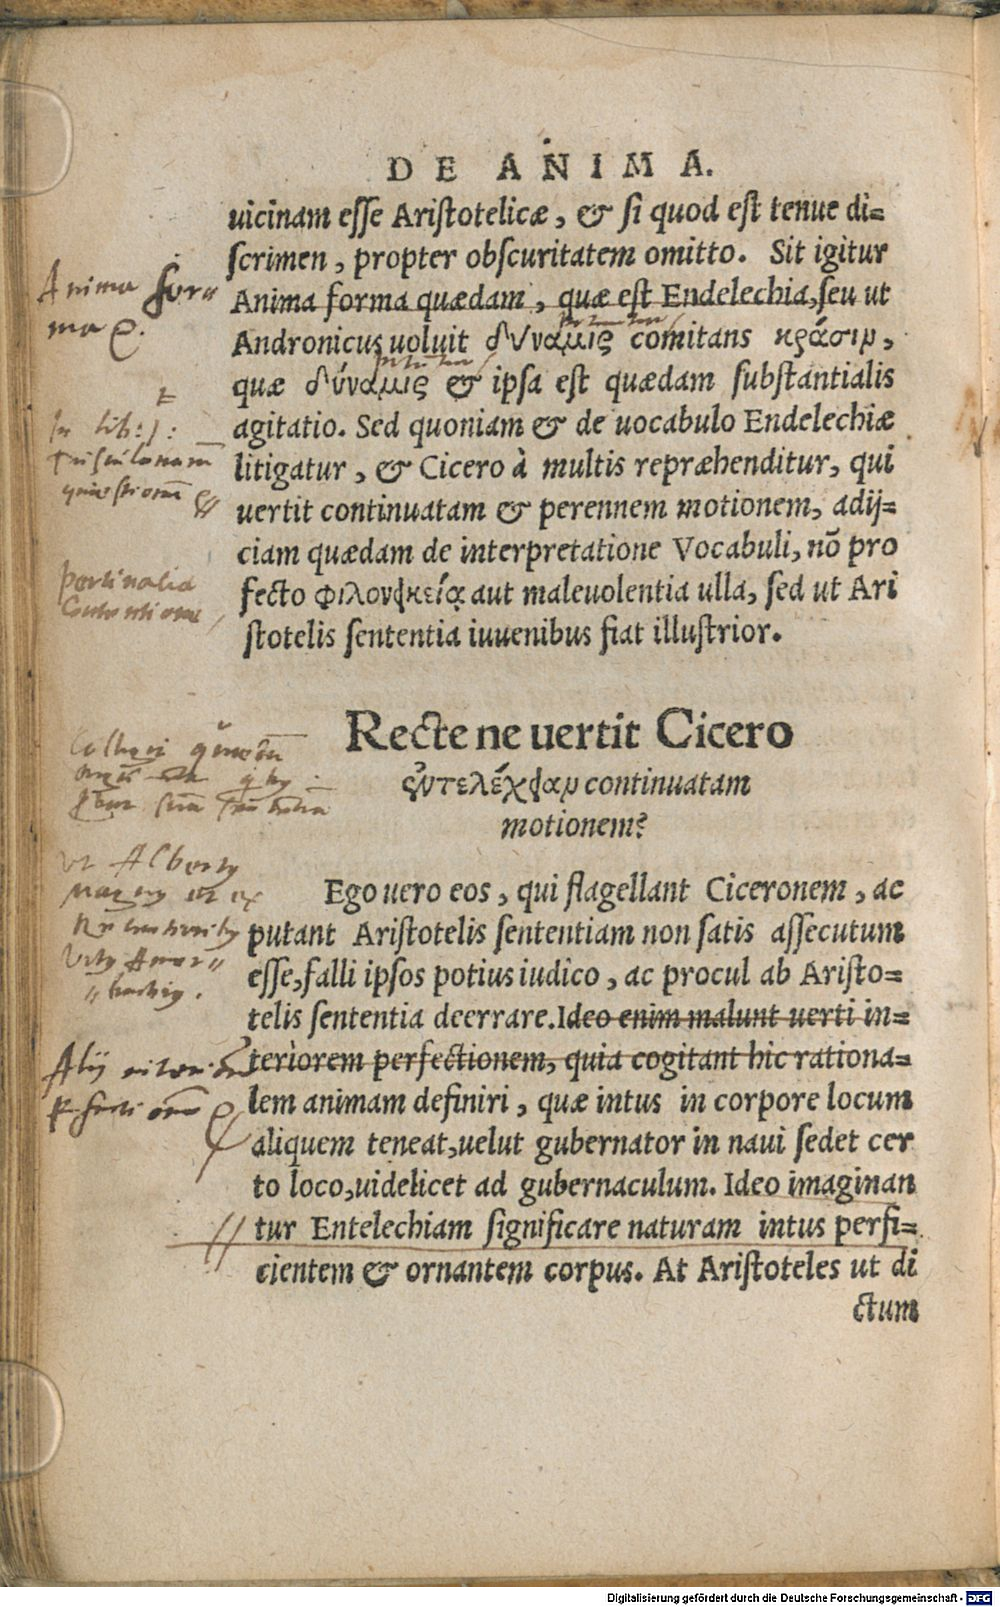 DE ANIMA.
uicinam esse Aristotelicæ, & si quod est tenue di=
scrimen, propter obscuritatem omitto. Sit igitur
Anima forma quædam, quæ est Endelechia, seu ut
Andronicus uoluit δύναμις comitans κρᾶσιν,
quæ δύναμις & ipsa est quædam substantialis
agitatio. Sed quoniam & de uocabulo Endelechiæ
litigatur, & Cicero à multis repræhenditur, qui
uertit continuatam & perennem motionem, adij=
ciam quædam de interpretatione Vocabuli, nō pro
fecto φιλονεικείᾳ aut maleuolentia ulla, sed ut Ari
stotelis sententia iuuenibus fiat illustrior.
Anima for=
ma
In lib: 1:
pertinatia
Contentione
Recte ne uertit Cicero
ἐντελέχειαν continuatam
motionem?
Ego uero eos, qui flagellant Ciceronem, ac
putant Aristotelis sententiam non satis assecutum
esse, falli ipsos potius iudico, ac procul ab Aristo=
telis sententia deerrare. Ideo enim malunt uerti in=
teriorem perfectionem, quia cogitant hic rationa=
lem animam definiri, quæ intus in corpore locum
aliquem teneat, uelut gubernator in naui sedet cer
to loco, uidelicet ad gubernaculum. Ideo imaginan
tur Entelechiam significare naturam intus perfi=
cientem & ornantem corpus. At Aristoteles ut di
ctum
ut Alberty
Alij
Digitalisierung gefördert durch die Deutsche Forschungsgemeinschaft - DFG